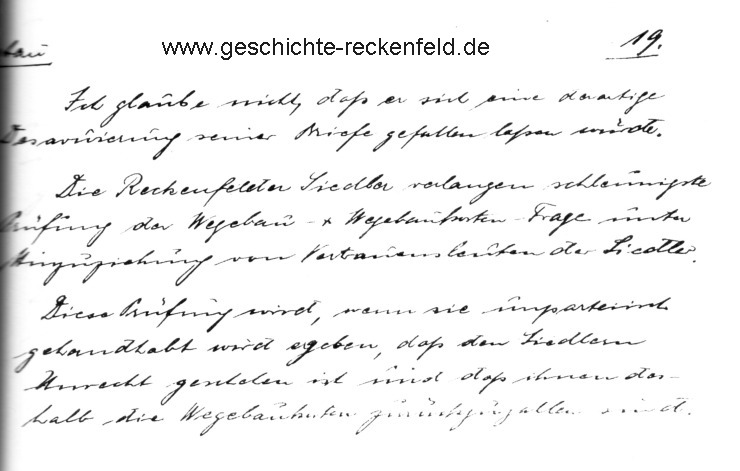 www.geschichte-reckenfeld.de
bau 19.
Ich glaube nicht, daß er sich eine derartige
Desavouierung seiner Briefe gefallen laßen würde.
Die Reckenfelder Siedler verlangen schleunigste
Prüfung der Wegebau- & Wegebaukosten-Frage unter
Hinzuziehung von Vertrauensleuten der Siedler.
Diese Prüfung wird, wenn sie unparteiisch
gehandhabt wird ergeben, daß den Siedlern
Unrecht geschehen ist und daß ihnen des-
halb die Wegebaukosten zurückzuzahlen sind.